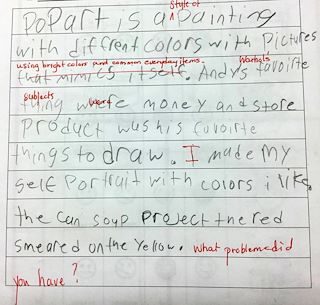 Style of
PoPart is a painting
with diffrent colors with Pictures
using bright colors and common everyday items.
that mimics itself. Andys favoirte
Warhols
subjects
thing where money and store
Product was his favoirte
things to draw. I made My
self Portrait with colors i like.
the can soup project the red
smeared on the Yellow. what problems did
you have?